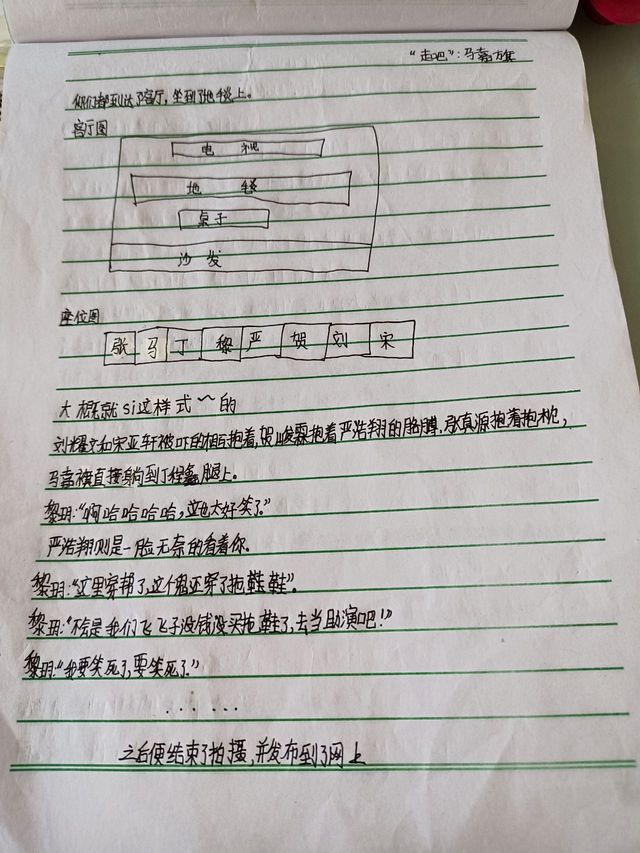 “走吧”:马嘉旗
你们都到达了客厅,坐到了地毯上。
客厅图
电 视
地 毯
桌子
沙发
座位图
张 马 丁 黎 严 贺 刘 宋
大概就si这样式~的
刘耀文和宋亚轩被吓的相互抱着,贺峻霖抱着严浩翔的胳膊,张真源抱着抱枕,
马嘉祺直接躺到丁程鑫腿上。
黎玥:“啊哈哈哈哈,这也太好笑了。”
严浩翔则是一脸无奈的看着你。
黎玥:“这里穿帮了,这个鬼还穿了拖鞋鞋”。
黎玥:“不会是我们飞飞子没钱没买拖鞋了,去当助演吧!”
黎玥:“我要笑死了,要笑死了。”
......
之后便结束了拍摄,并发布到了网上